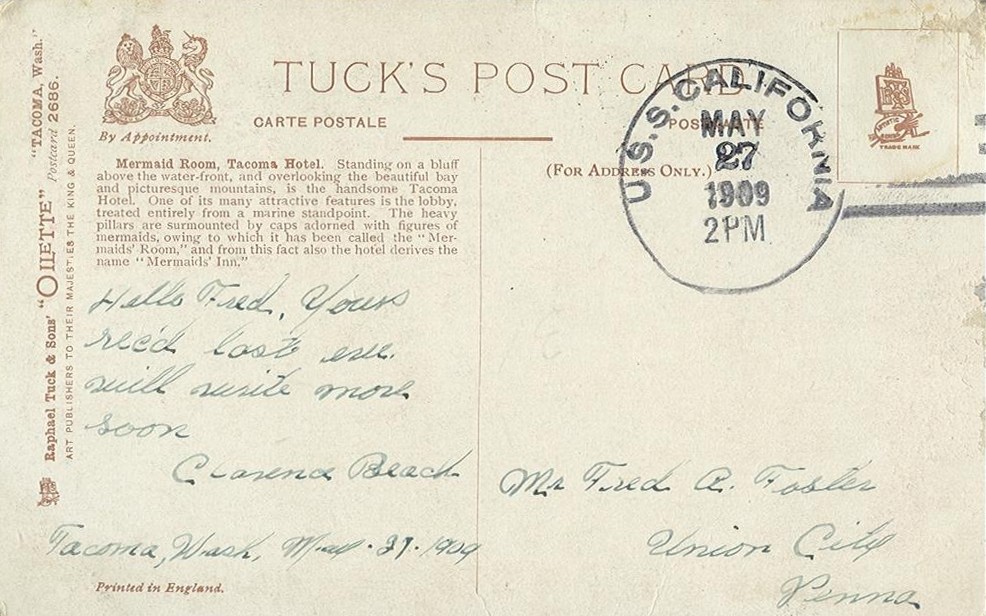 TUCK'S POST CARD
CARTE POSTALE
By Appointment.
(For Address Only.)
U.S.S. CALIFORNIA
MAY
27
1909
2PM
TRADE MARK
"TACOMA, Wash."
Raphael Tuck & Sons' "OILETTE" Postcard 2686.
ART PUBLISHERS TO THEIR MAJESTIES THE KING & QUEEN.
Mermaid Room, Tacoma Hotel. Standing on a bluff
above the water-front, and overlooking the beautiful bay
and picturesque mountains, is the handsome Tacoma
Hotel. One of its many attractive features is the lobby,
treated entirely from a marine standpoint. The heavy
pillars are surmounted by caps adorned with figures of
mermaids, owing to which it has been called the "Mer-
maids' Room," and from this fact also the hotel derives the
name "Mermaids' Inn."
Hello Fred, Yours
rec'd last eve.
will write more
soon
Clarence Beach
Tacoma, Wash, 27. 1909
Mr Fred A. Foster
Union City
Penna
Printed in England.